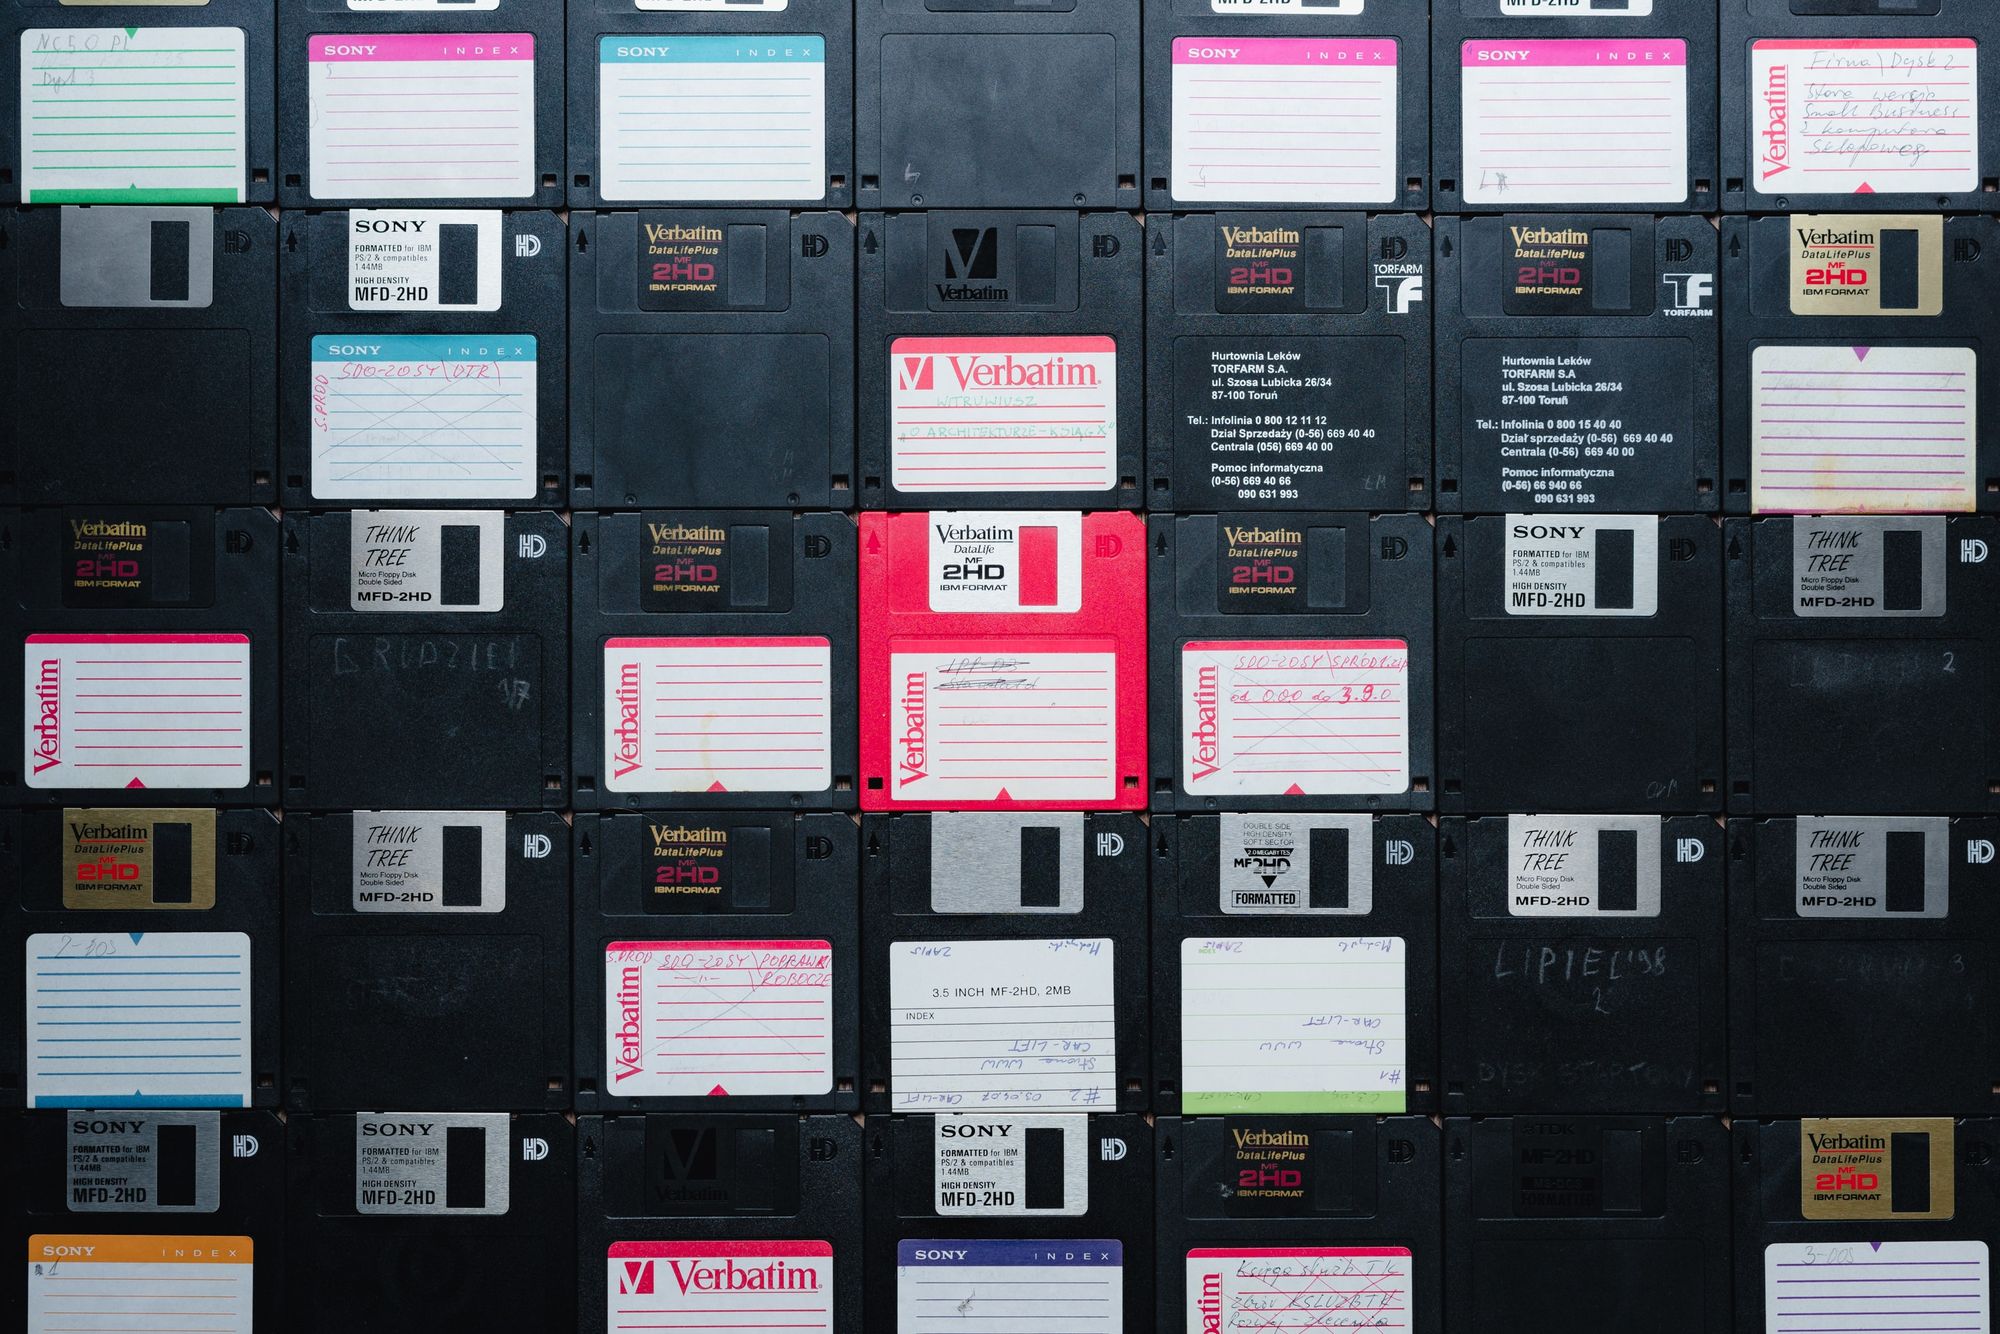 MFD-2HD
MFD-2HD
MFD-2HD
SONY INDEX
5
SONY INDEX
SONY INDEX
SONY INDEX
Verbatim
Firma\Dysk 2
Stara wersja
Small Business
z komputera
sklepowego
HD
SONY
FORMATTED for IBM
PS/2 & compatibles
1.44MB
HIGH DENSITY
MFD-2HD
HD
SONY INDEX
S.PROD
SDO-20SY\DTR\
Verbatim
DataLifePlus
MF
2HD
IBM FORMAT
HD
V
Verbatim
HD
Verbatim.
WITRUWIUSZ
"O ARCHITEKTURZE-KSIĄG X"
Verbatim
DataLifePlus
MF
2HD
IBM FORMAT
HD
TORFARM
TF
Hurtownia Leków
TORFARM S.A.
ul. Szosa Lubicka 26/34
87-100 Toruń
Tel.: Infolinia 0 800 12 11 12
Dział Sprzedaży (0-56) 669 40 40
Centrala (056) 669 40 00
Pomoc informatyczna
(0-56) 669 40 66
090 631 993
Verbatim
DataLifePlus
MF
2HD
IBM FORMAT
HD
TF
TORFARM
Hurtownia Leków
TORFARM S.A
ul. Szosa Lubicka 26/34
87-100 Toruń
Tel.: Infolinia 0 800 15 40 40
Dział sprzedaży (0-56) 669 40 40
Centrala (0-56) 669 40 00
Pomoc informatyczna
(0-56) 66 940 66
090 631 993
Verbatim
DataLifePlus
MF
2HD
IBM FORMAT
HD
Verbatim
DataLifePlus
MF
2HD
IBM FORMAT
HD
Verbatim
THINK
TREE
Micro Floppy Disk
Double Sided
MFD-2HD
HD
Verbatim
DataLifePlus
MF
2HD
IBM FORMAT
HD
Verbatim
Verbatim
DataLife
MF
2HD
IBM FORMAT
HD
Verbatim
Standard
Verbatim
DataLifePlus
MF
2HD
IBM FORMAT
HD
Verbatim
SDO-20SY\SPROD1.zip
od 0.0.0 do 3.9.0
SONY
FORMATTED for IBM
PS/2 & compatibles
1.44MB
HIGH DENSITY
MFD-2HD
HD
THINK
TREE
Micro Floppy Disk
Double Sided
MFD-2HD
HD
2
Verbatim
DataLifePlus
MF
2HD
IBM FORMAT
HD
THINK
TREE
Micro Floppy Disk
Double Sided
MFD-2HD
HD
Verbatim
DataLifePlus
MF
2HD
IBM FORMAT
HD
Verbatim
S.PROD SDO-20SY\POPRAWKI
—"— \ROBOCZE
HD
ZAPIS
3.5 INCH MF-2HD, 2MB
INDEX
CAR-LIFT
Strona WWW
#2 03.04.02 CAR-LIFT
DOUBLE SIDE
HIGH DENSITY
SOFT SECTOR
2.0 MEGABYTES
MF2HD
FORMATTED
HD
INDEX
ZAPIS
CAR-LIFT
Strona WWW
#1
THINK
TREE
Micro Floppy Disk
Double Sided
MFD-2HD
HD
LIPIEC '98
2
DYSK STARTOWY
THINK
TREE
Micro Floppy Disk
Double Sided
MFD-2HD
HD
3
SONY
FORMATTED for IBM
PS/2 & compatibles
1.44MB
HIGH DENSITY
MFD-2HD
HD
SONY INDEX
1
SONY
FORMATTED for IBM
PS/2 & compatibles
1.44MB
HIGH DENSITY
MFD-2HD
HD
V
Verbatim
HD
Verbatim.
SONY
FORMATTED for IBM
PS/2 & compatibles
1.44MB
HIGH DENSITY
MFD-2HD
HD
SONY INDEX
3
Verbatim
DataLifePlus
MF
2HD
IBM FORMAT
HD
Księga służb TK
zbiór KSLUZBTK
TDK
MF-2HD
FORMATTED
HD
Verbatim
DataLifePlus
MF
2HD
IBM FORMAT
HD
3-DOS